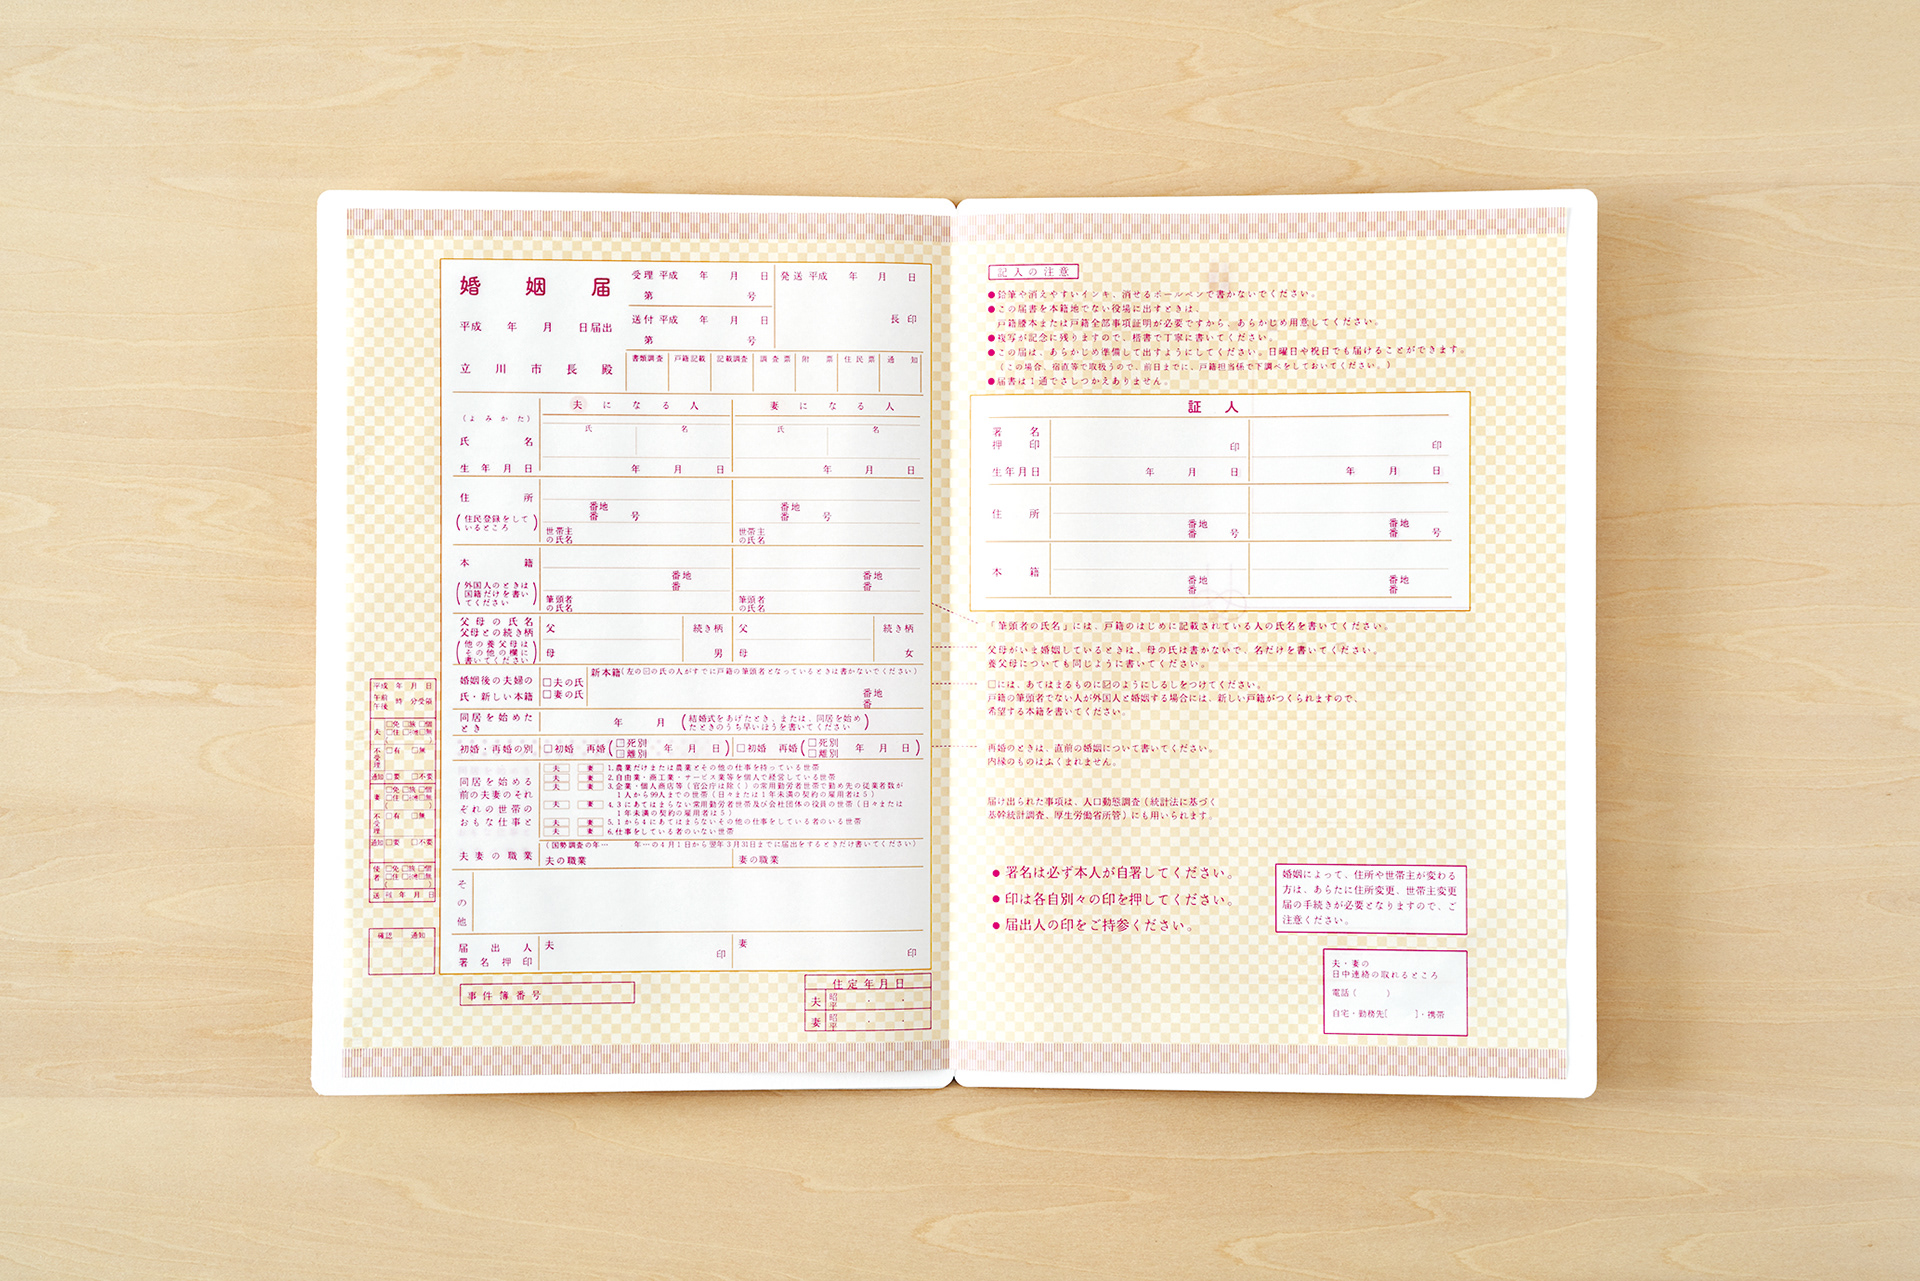 婚姻届
平成 年 月 日届出
立川市長殿
受理 平成 年 月 日
第 号
送付 平成 年 月 日
第 号
発送 平成 年 月 日
長印
書類調査 戸籍記載 記載調査 調査票 附票 住民票 通知
夫になる人 妻になる人
(よみかた)
氏 名 氏 名
氏名
生年月日 年 月 日 年 月 日
住所
(住民登録をしているところ)
番地 番 号 番地 番 号
世帯主の氏名 世帯主の氏名
本籍
(外国人のときは国籍だけを書いてください)
番地 番 番地 番
筆頭者の氏名 筆頭者の氏名
父母の氏名
父母との続き柄
(他の養父母はその他の欄に書いてください)
父 続き柄 父 続き柄
母 男 母 女
婚姻後の夫婦の氏・新しい本籍
□夫の氏
□妻の氏
新本籍(左の☑の氏の人がすでに戸籍の筆頭者となっているときは書かないでください)
番地 番
同居を始めたとき 年 月 (結婚式をあげたとき、または、同居を始めたときのうち早いほうを書いてください)
初婚・再婚の別 □初婚 再婚(□死別 □離別 年 月 日) □初婚 再婚(□死別 □離別 年 月 日)
同居を始める前の夫妻のそれぞれの世帯のおもな仕事と
夫 妻 1.農業だけまたは農業とその他の仕事を持っている世帯
夫 妻 2.自由業・商工業・サービス業等を個人で経営している世帯
夫 妻 3.企業・個人商店等(官公庁は除く)の常用勤労者世帯で勤め先の従業者数が
1人から99人までの世帯(日々または1年未満の契約の雇用者は5)
夫 妻 4.3にあてはまらない常用勤労者世帯及び会社団体の役員の世帯(日々または
1年未満の契約の雇用者は5)
夫 妻 5.1から4にあてはまらないその他の仕事をしている者のいる世帯
夫 妻 6.仕事をしている者のいない世帯
夫妻の職業
(国勢調査の年… 年…の4月1日から翌年3月31日までに届出をするときだけ書いてください)
夫の職業 妻の職業
その他
届出人署名押印 夫 印 妻 印
事件簿番号
住定年月日
夫 昭 平 ・ ・
妻 昭 平 ・ ・
平成 年 月 日
午前 午後 時 分受領
夫 □免 □旅 □個
□住 □無
( )
不受理 □有 □無
通知 □要 □不要
妻 □免 □旅 □個
□住 □無
( )
不受理 □有 □無
通知 □要 □不要
使者 □免 □旅 □個
□住 □無
( )
年 月 日
確認 通知
記入の注意
●鉛筆や消えやすいインキ、消せるボールペンで書かないでください。
●この届書を本籍地でない役場に出すときは、
戸籍謄本または戸籍全部事項証明が必要ですから、あらかじめ用意してください。
●複写が記念に残りますので、楷書で丁寧に書いてください。
●この届は、あらかじめ準備して出すようにしてください。日曜日や祝日でも届けることができます。
(この場合、宿直等で取扱うので、前日までに、戸籍担当係で下調べをしておいてください。)
●届書は1通でさしつかえありません。
証人
署名押印 印 印
生年月日 年 月 日 年 月 日
住所 番地 番 号 番地 番 号
本籍 番地 番 番地 番
「筆頭者の氏名」には、戸籍のはじめに記載されている人の氏名を書いてください。
父母がいま婚姻しているときは、母の氏は書かないで、名だけを書いてください。
養父母についても同じように書いてください。
□には、あてはまるものに☑のようにしるしをつけてください。
戸籍の筆頭者でない人が外国人と婚姻する場合には、新しい戸籍がつくられますので、
希望する本籍を書いてください。
再婚のときは、直前の婚姻について書いてください。
内縁のものはふくまれません。
届け出られた事項は、人口動態調査(統計法に基づく
基幹統計調査、厚生労働省所管)にも用いられます。
● 署名は必ず本人が自署してください。
● 印は各自別々の印を押してください。
● 届出人の印をご持参ください。
婚姻によって、住所や世帯主が変わる
方は、あらたに住所変更、世帯主変更
届の手続きが必要となりますので、ご
注意ください。
夫・妻の
日中連絡の取れるところ
電話( )
自宅・勤務先[ ]・携帯